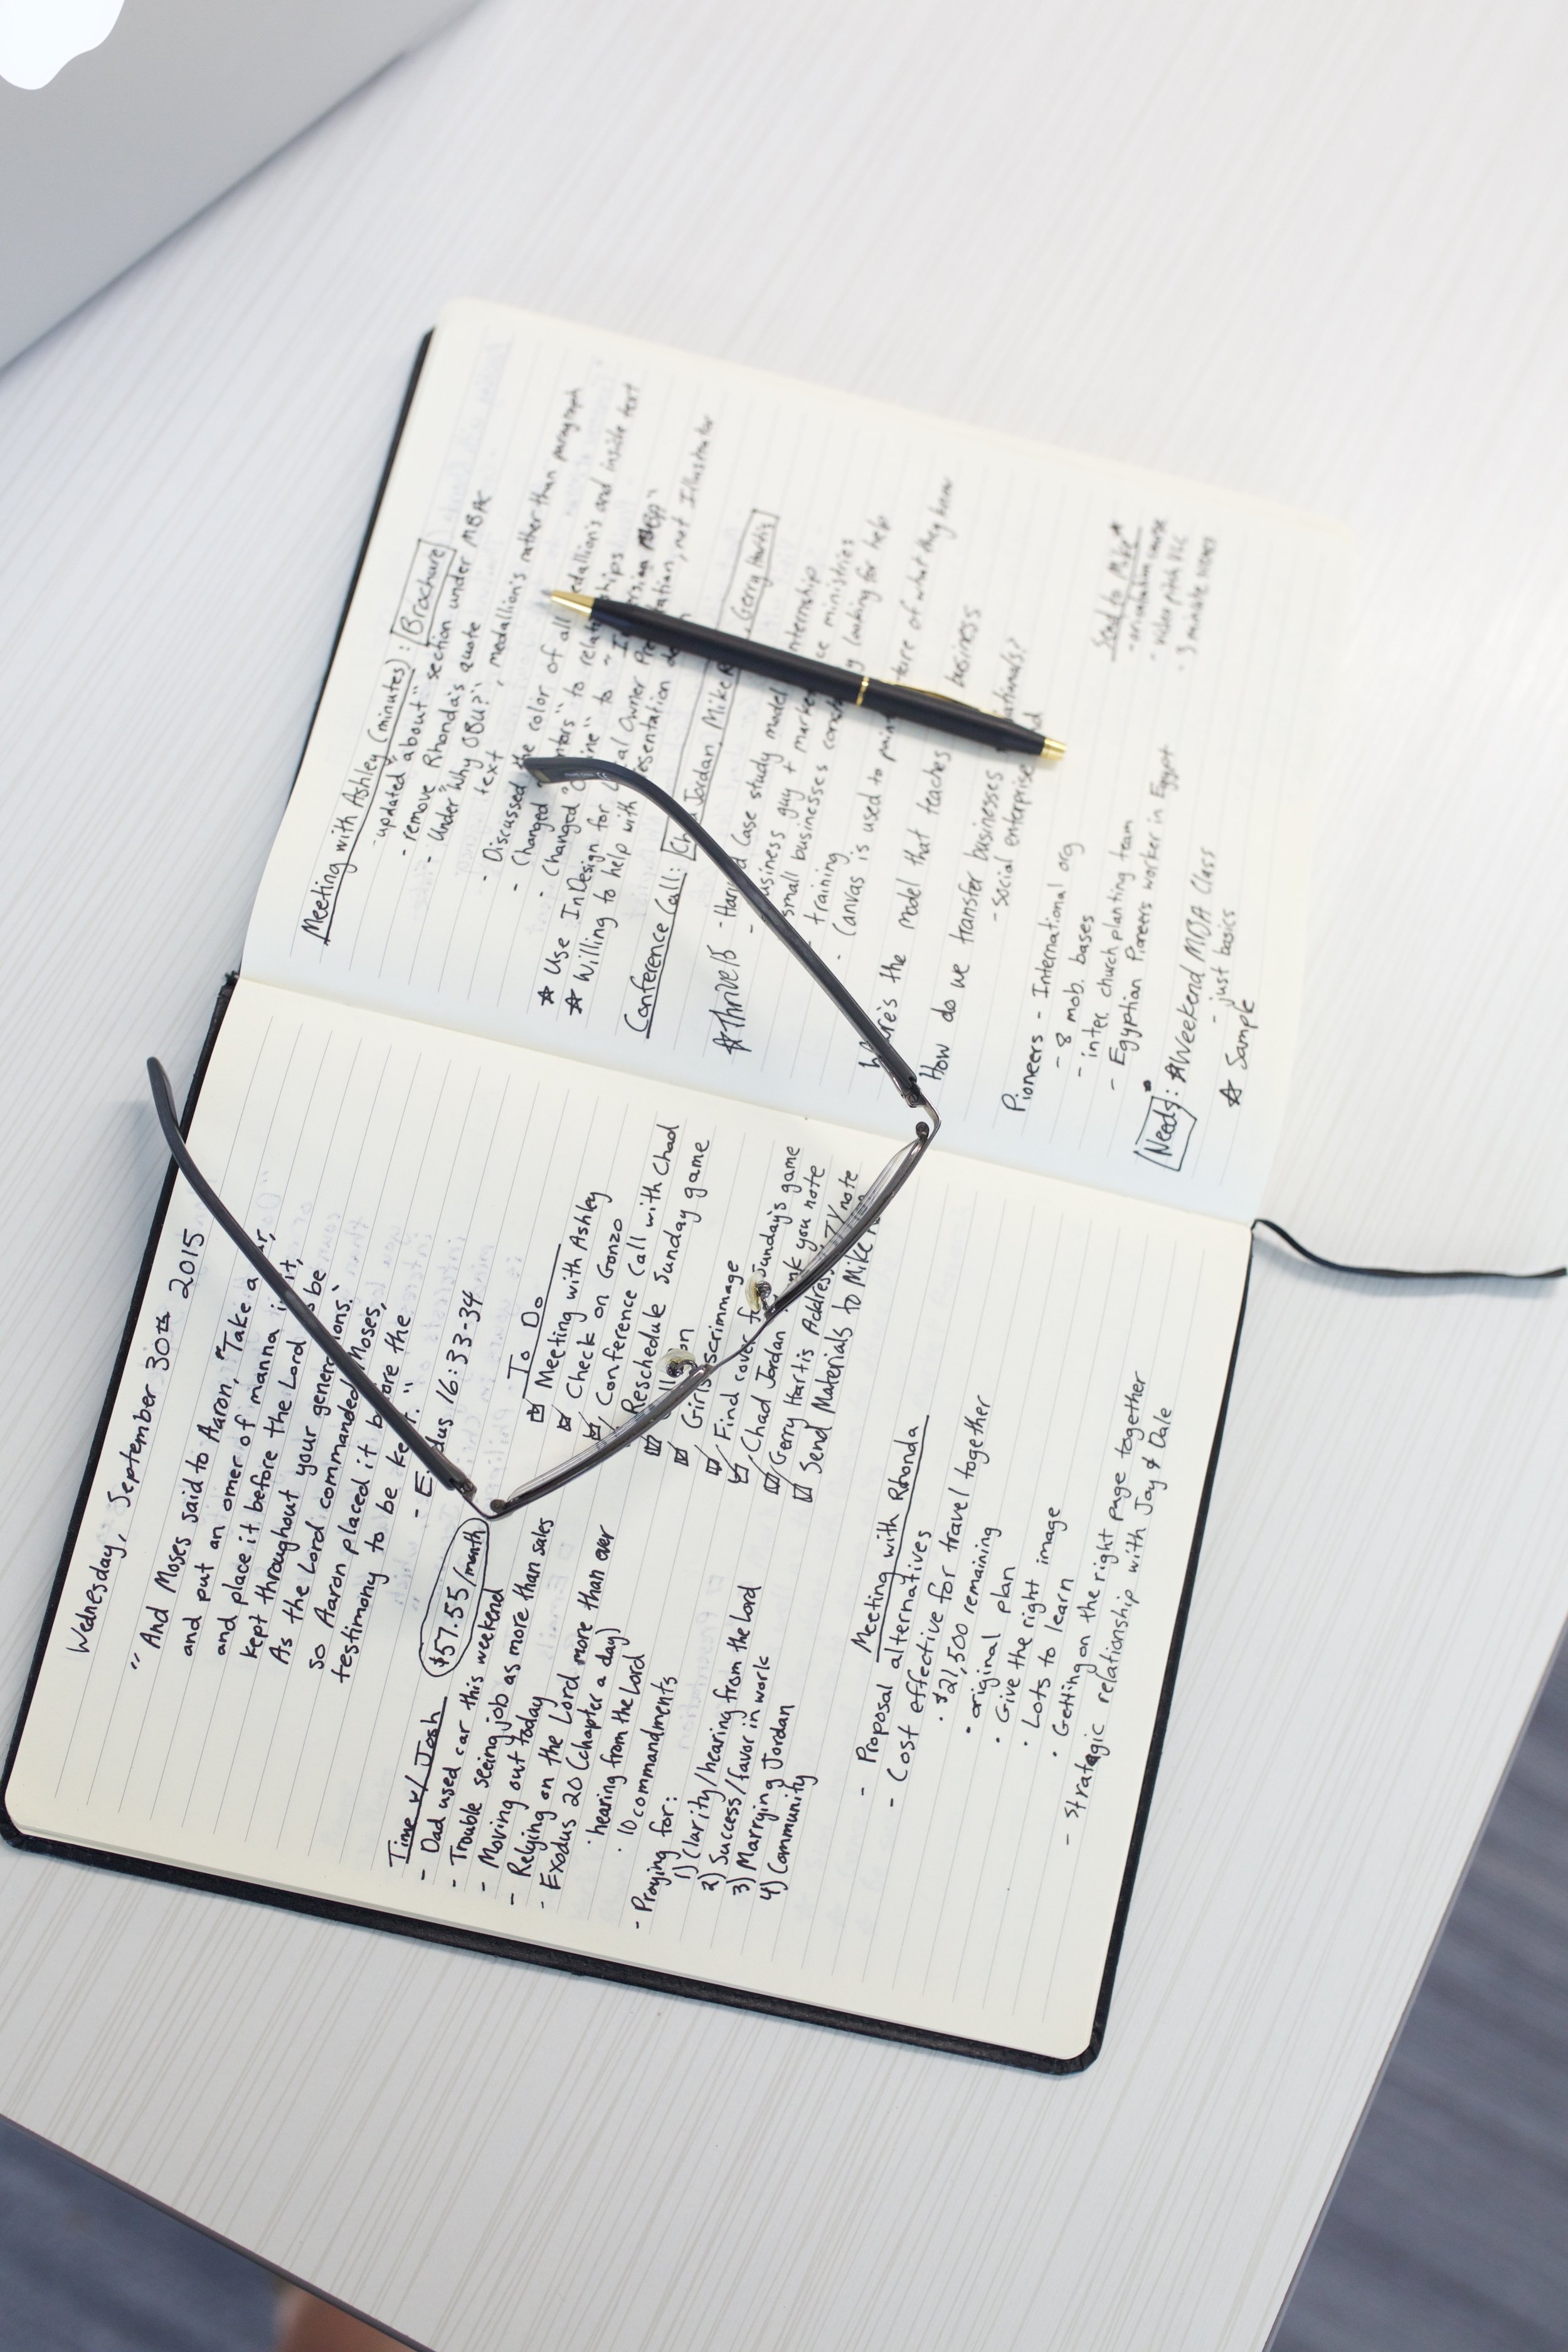 Wednesday, September 30th 2015
"And Moses said to Aaron, "Take a
and put an omer of manna in it,
and place it before the Lord to be
kept throughout your generations."
As the Lord commanded Moses,
so Aaron placed it before the
testimony to be kept."
- Exodus 16:33-34
Time w/ Josh $57.55/month
- Dad used car this weekend
- Trouble seeing job as more than sales
- Moving out today
- Relying on the Lord more than ever
- Exodus 20 (chapter a day)
· hearing from the Lord
· 10 commandments
- Praying for:
1) Clarity/hearing from the Lord
2) Success/favor in work
3) Marrying Jordan
4) Community
To Do
Meeting with Ashley
Check on Gonzo
Conference Call with Chad
Reschedule Sunday game
Girls scrimmage
Find cover for Sunday's game
Chad Jordan thank you note
Gerry Hartis Address, TY note
Send Materials to Mike
Meeting with Rhonda
- Proposal alternatives
- Cost effective for travel together
· $21,500 remaining
· original plan
· Give the right image
· Lots to learn
· Getting on the right page together
- Strategic relationship with Jay & Dale
Meeting with Ashley (minutes): Brochure
- updated "about" section under MBAe
- remove Rhonda's quote
- Under "Why OBU?", medallion's rather than paragraph
text
- Discussed the color of all medallion's and inside text
- Changed to relationships
- Changed to
☆ Use InDesign for presentation, not Illustrator
☆ Willing to help with presentation
Conference Call: Chad Jordan, Mike Gerry Hartis
☆thrive15 - Harvard Case study model internship
- business guy + ministries
- small businesses looking for help
training
- Canvas is used to of what they know
Where's the model that teaches business
How do we transfer businesses
- social enterprise
Pioneers - International org
- 8 mob. bases
- inter. church planting team
- Egyptian Pioneers worker in Egypt
Needs: ☆Weekend MBA Class
- just basics
☆ Sample
Send to Mike*
· video pitch